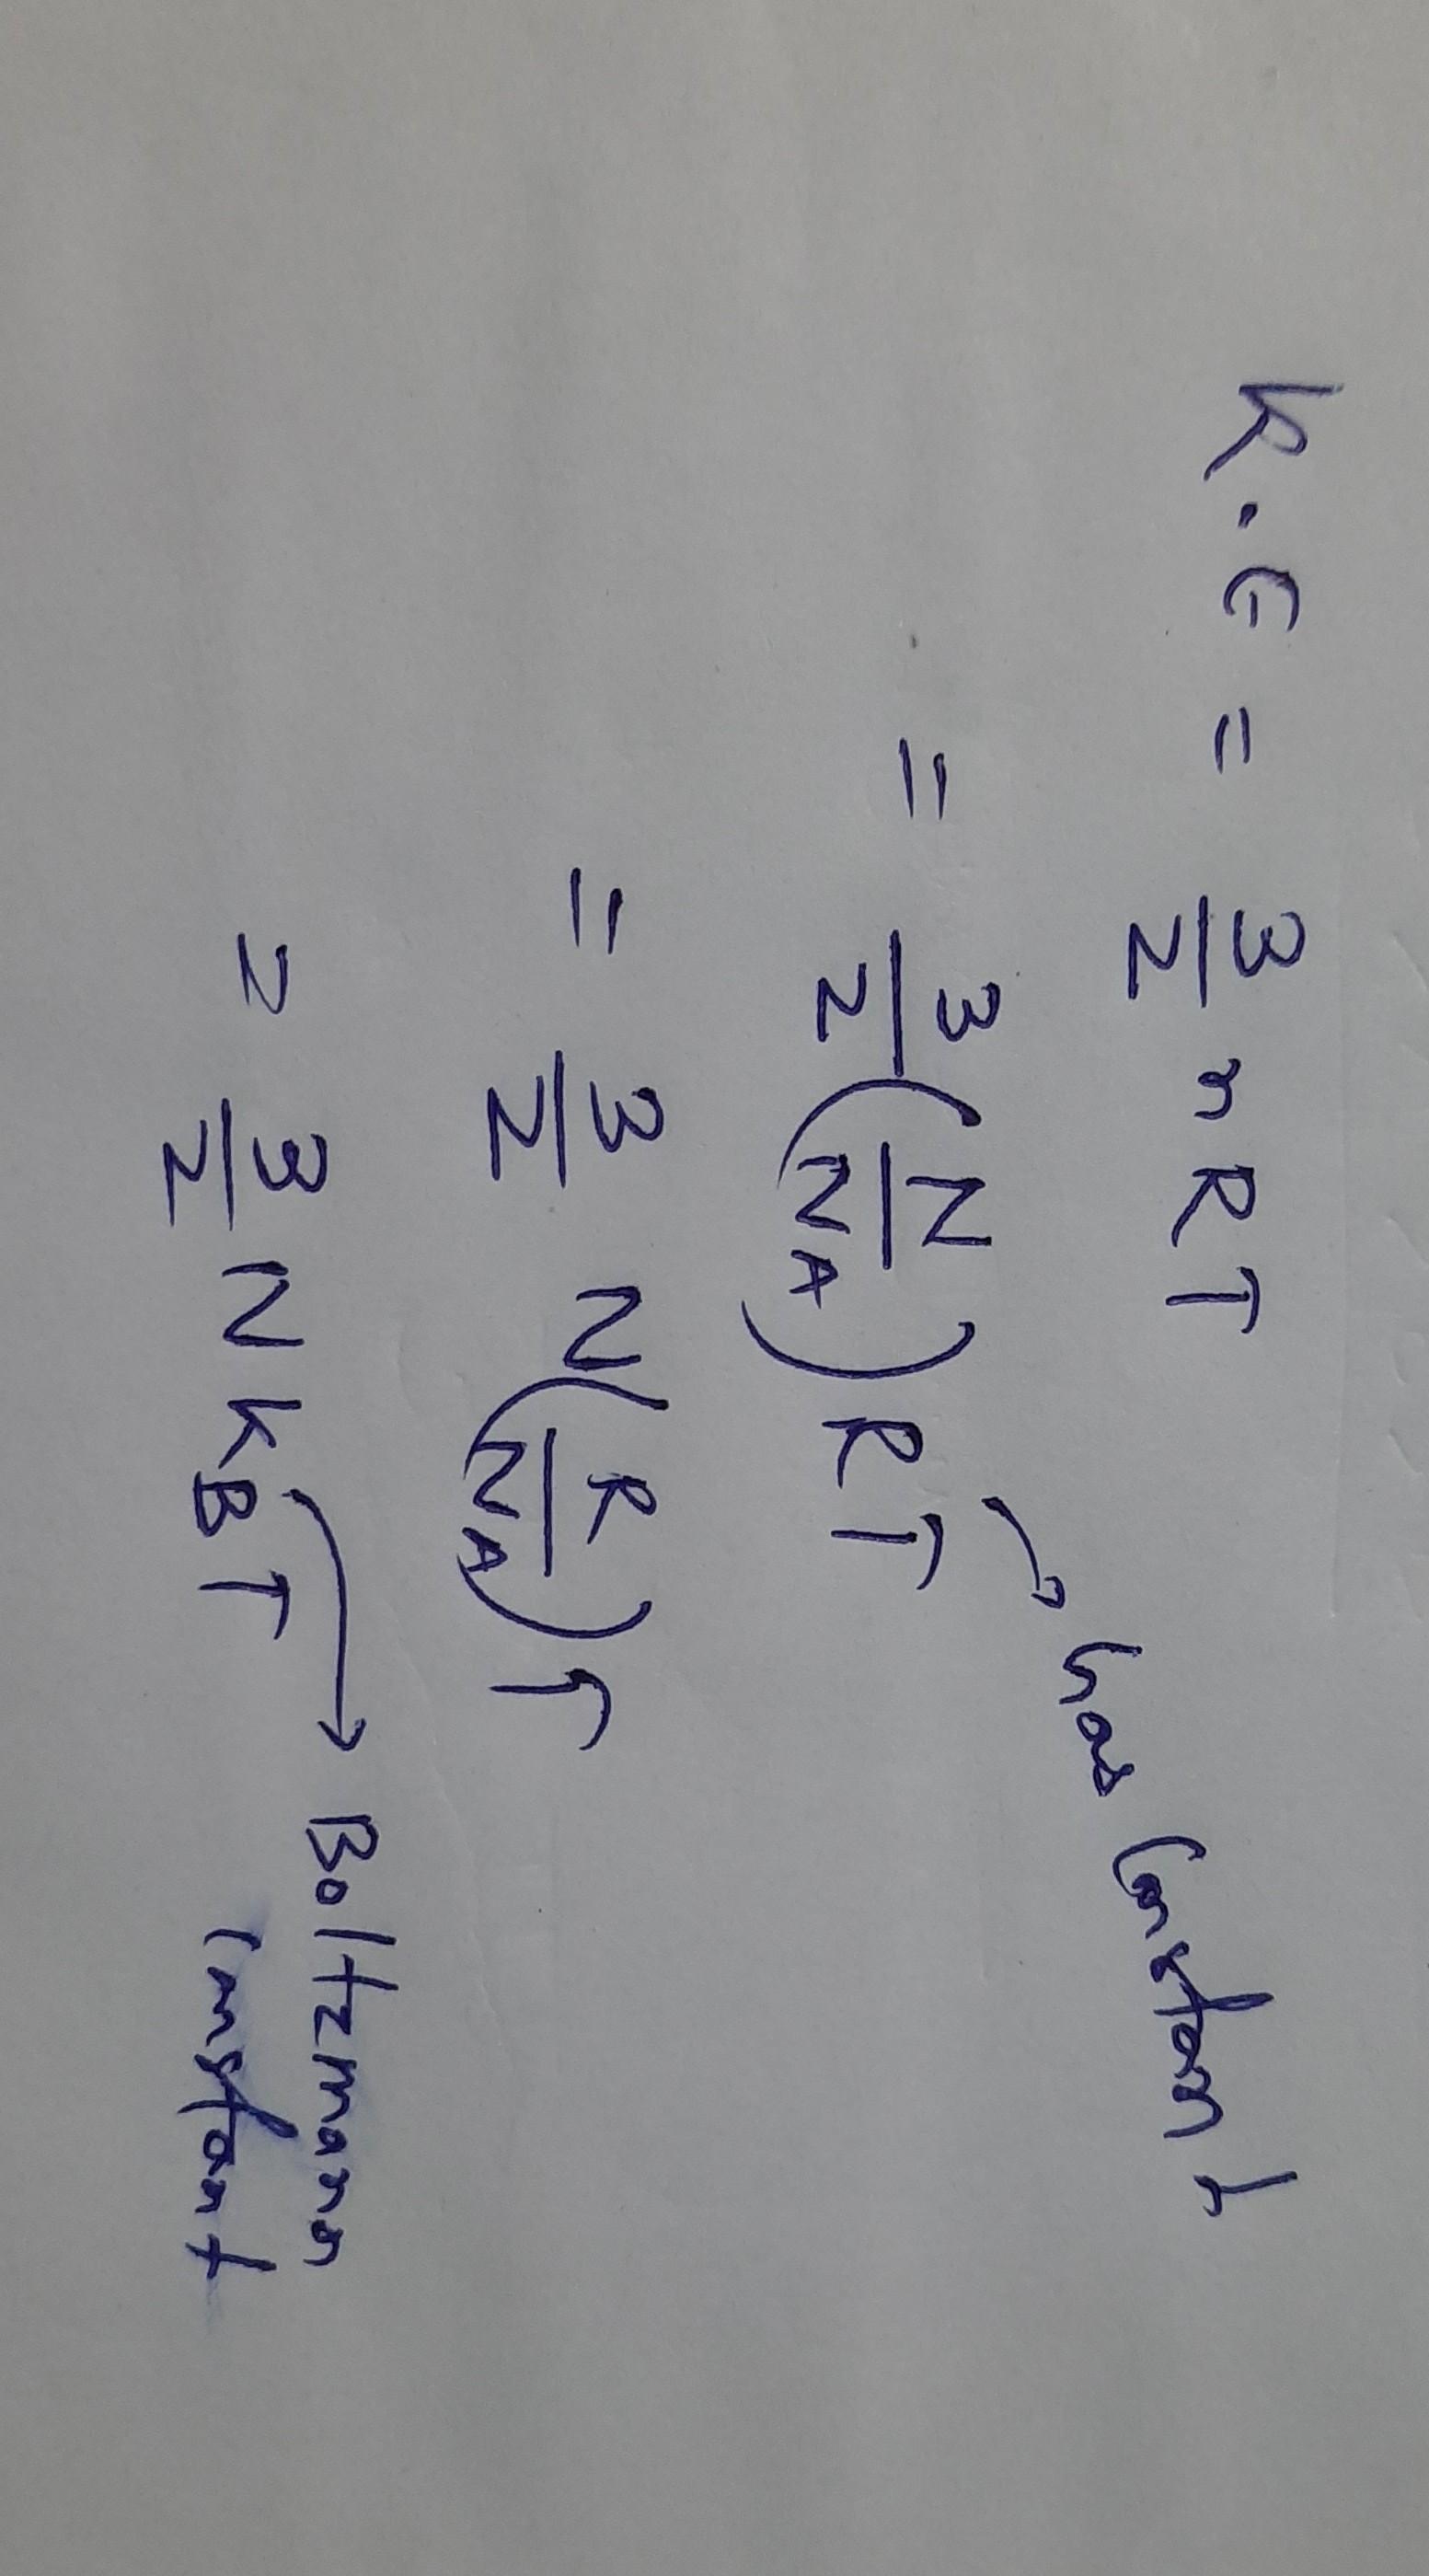 K.E = 3/2 nRT
= 3/2 (N/N_A) RT → Gas Constant
= 3/2 N (R/N_A) T
= 3/2 N k_B T → Boltzmann
Constant